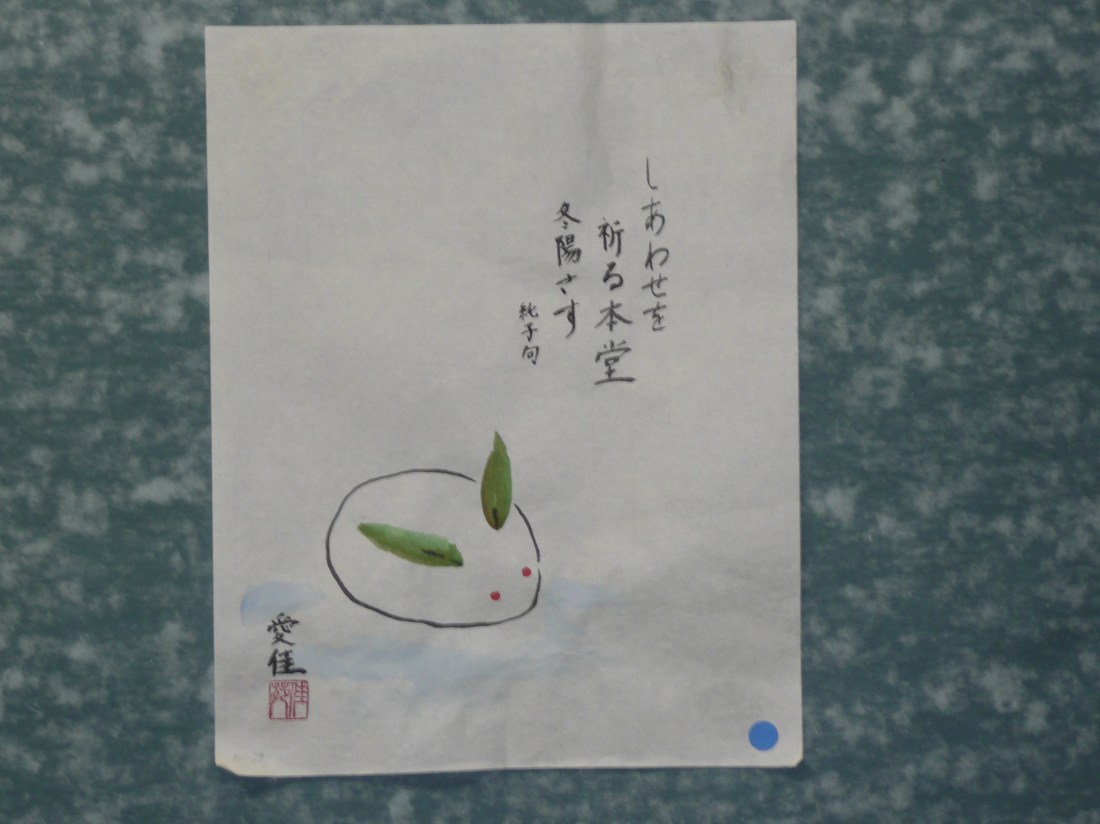 しあわせを
祈る本堂
冬陽さす
純子句
愛佳